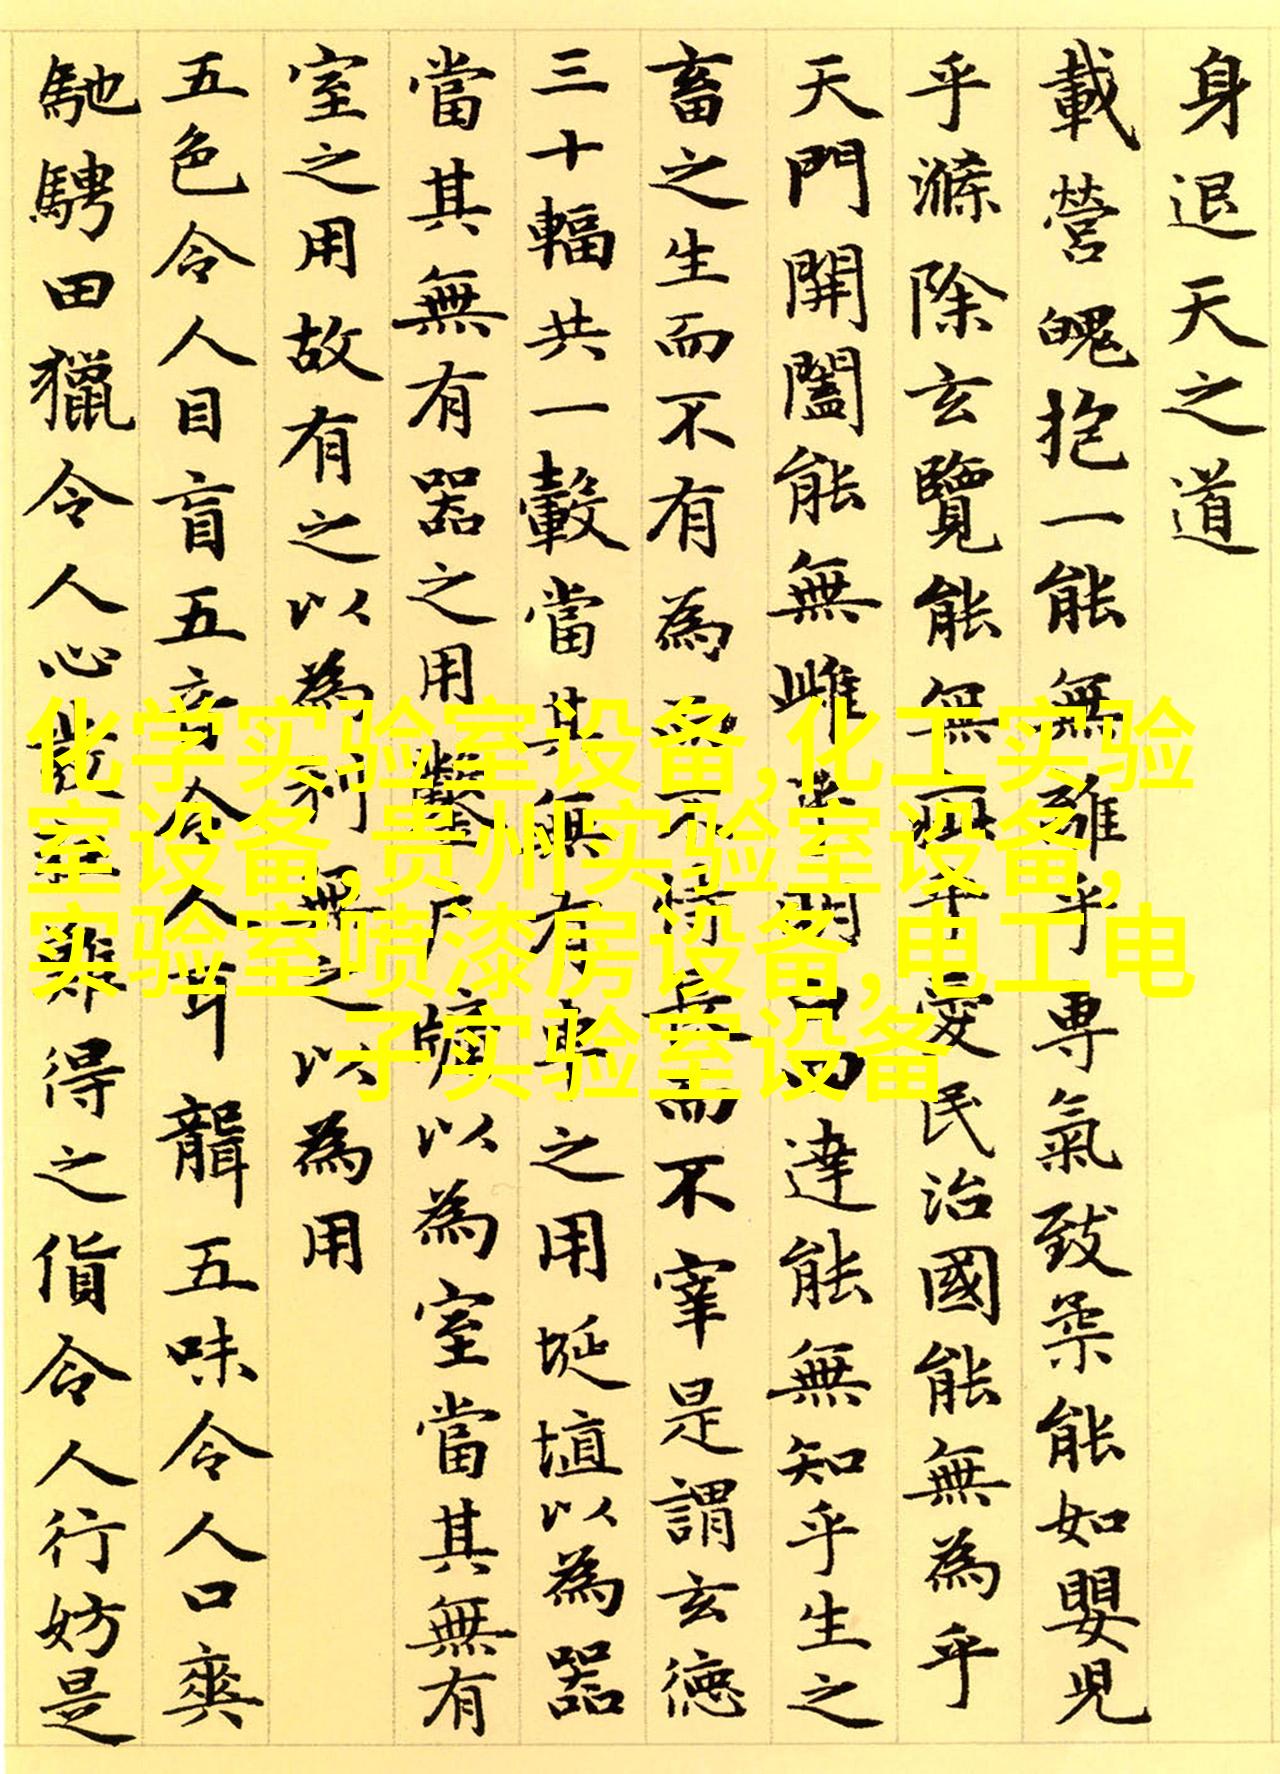 身退天之道
載營魄抱一能無離乎專氣致柔能如嬰児
乎滌除玄覽能無疵乎愛民治國能無為乎
天門開闔能無雌乎明白四達能無知乎生之
畜之生而不有為而不恃長而不宰是謂玄德
三十輻共一轂當其無有車之用埏埴以為器
當其無有器之用鑿戶牖以為室當其無有
室之用故有之以為利無之以為用
五色令人目盲五音令人耳聾五味令人口爽
馳騁田獵令人心發狂難得之貨令人行妨是
化学实验室设备,化工实验
室设备,贵州实验室设备,
实验室喷漆房设备,电工电
子实验室设备